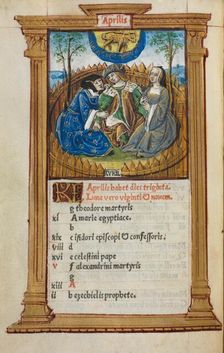 Aprilis
Aprilis habet dies triginta.
Luna vero viginti & novem.
g theodore martyris
xi A marie egyptiace.
b
xix c isidori episcopi & confessoris.
viii d
xvi e celestini pape
v f alexandrini martyris
g
xiii A
ii b ezechielis prophete.